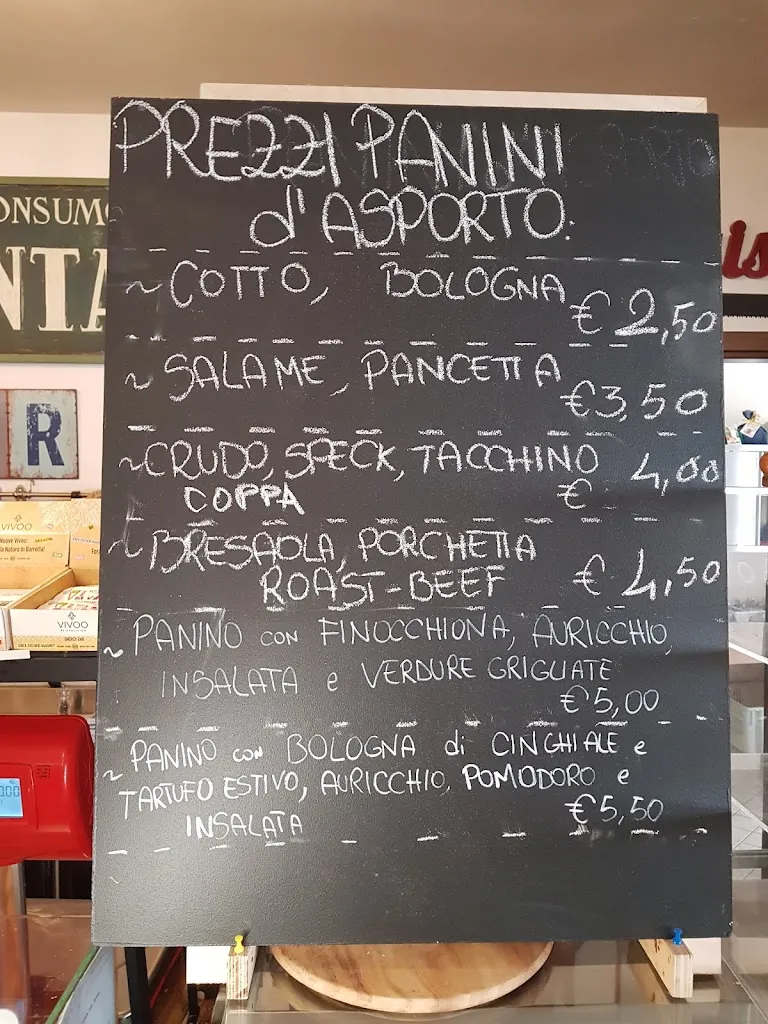 PREZZI PANINI
d'ASPORTO:
~ COTTO, BOLOGNA
€ 2,50
~ SALAME, PANCETTA
€3,50
~ CRUDO, SPECK, TACCHINO
COPPA € 4,00
~ BRESAOLA, PORCHETTA
ROAST-BEEF € 4,50
~ PANINO con FINOCCHIONA, AURICCHIO,
INSALATA e VERDURE GRIGLIATE
€5,00
~ PANINO con BOLOGNA di CINGHIALE e
TARTUFO ESTIVO, AURICCHIO, POMODORO e
INSALATA €5,50
ONSUMO
NTA
R
is
VIVOO
VIVOO